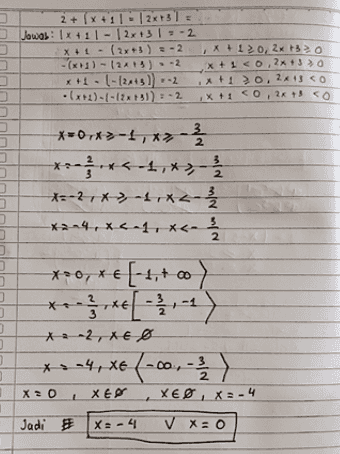 2 + |x + 1| = |2x+3| =
Jawab: |x + 1| - |2x+3| = -2
x + 1 - (2x+3) = -2 , x + 1 ≥ 0, 2x + 3 ≥ 0
-(x+1) - (2x+3) = -2 , x + 1 < 0, 2x + 3 ≥ 0
x + 1 - (-(2x+3)) = -2 , x + 1 ≥ 0, 2x + 3 < 0
-(x+1) - (-(2x+3)) = -2 , x + 1 < 0, 2x + 3 < 0
x = 0, x ≥ -1, x ≥ -3/2
x = -2/3, x < -1, x ≥ -3/2
x = -2, x ≥ -1, x < -3/2
x = -4, x < -1, x < -3/2
x = 0, x ∈ [-1, + ∞⟩
x = -2/3, x ∈ [-3/2, -1⟩
x = -2, x ∈ ∅
x = -4, x ∈ ⟨-∞, -3/2⟩
x = 0 , x ∈ ∅ , x ∈ ∅, x = -4
Jadi x = -4 V x = 0